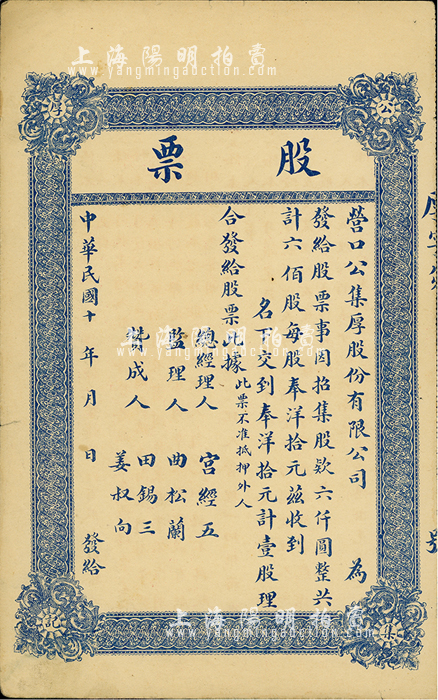 上海陽明拍賣
www.yangmingauction.com
公
厚
股票
營口公集厚股份有限公司 為
發給股票事因招集股欵六仟圓整共
計六佰股每股奉洋拾元茲收到
名下交到奉洋拾元計壹股理
合發給股票此據此票不准抵押外人
總經理人 宮經五
監理人 曲松蘭
贊成人 田錫三
姜叔向
中華民國十 年 月 日 發給
集
記
號
上海陽明拍賣
www.yangmingauction.com